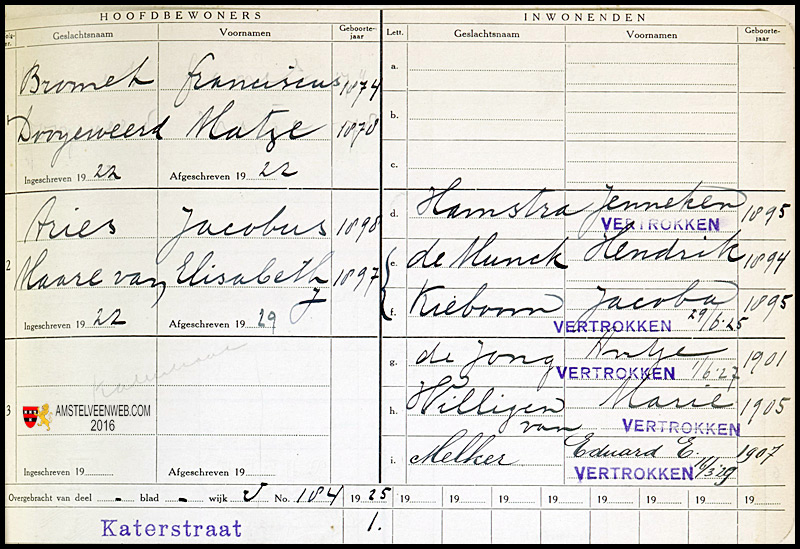 HOOFDBEWONERS
Geslachtsnaam Voornamen Geboorte-jaar
Bromet Franciscus 1874
Dooyeweerd Matze 1878
Ingeschreven 1922 Afgeschreven 1922
Aries Jacobus 1898
2 Maare van Elisabeth J 1897
Ingeschreven 1922 Afgeschreven 1929
3
AMSTELVEENWEB.COM
2016
Ingeschreven 19 Afgeschreven 19
INWONENDEN
Lett. Geslachtsnaam Voornamen Geboorte-jaar
a.
b.
c.
d. Hamstra Jenneken 1895
VERTROKKEN
e. de Munck Hendrik 1894
f. Kieboom Jacoba 1895
VERTROKKEN 29/6.25
g. de Jong Antje 1901
VERTROKKEN 1/6.27
h. Willigen van Marie 1905
VERTROKKEN
i. Melker Eduard E. 1907
VERTROKKEN 16/3.29
Overgebracht van deel - blad - wijk V No. 184 1925 19 19 19 19 19 19 19 19
Katerstraat 1.